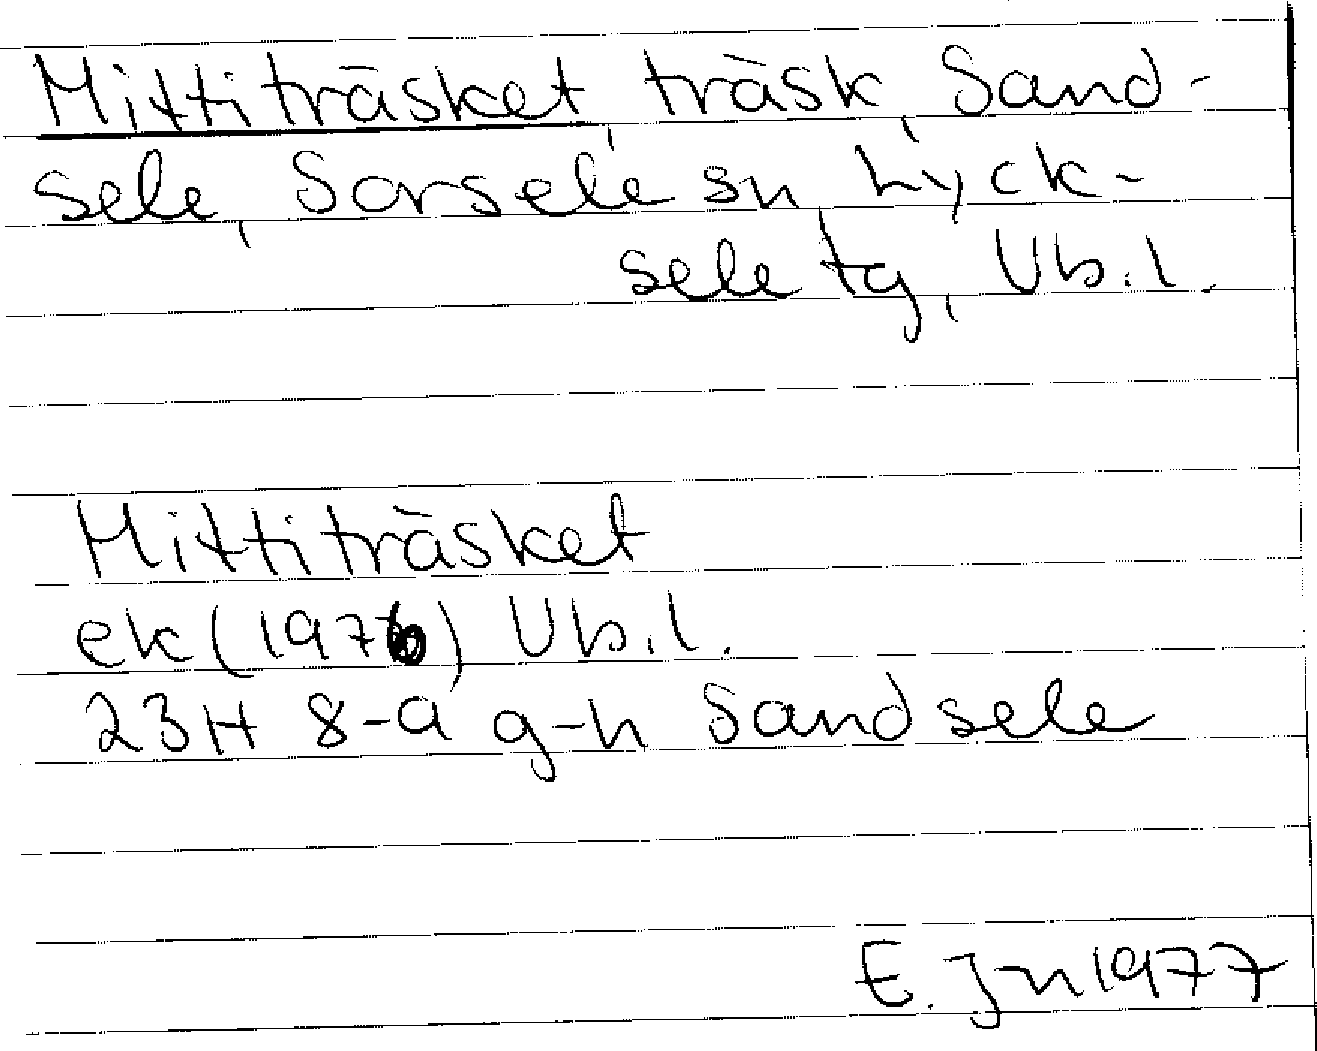 Mittiträsket, träsk, Sand-
sele, Sorsele sn, Lyck-
sele tg, Vb.l.
Mittiträsket
ek (1976) Vb.l.
23H 8-a g-h Sandsele
E. Jn 1977